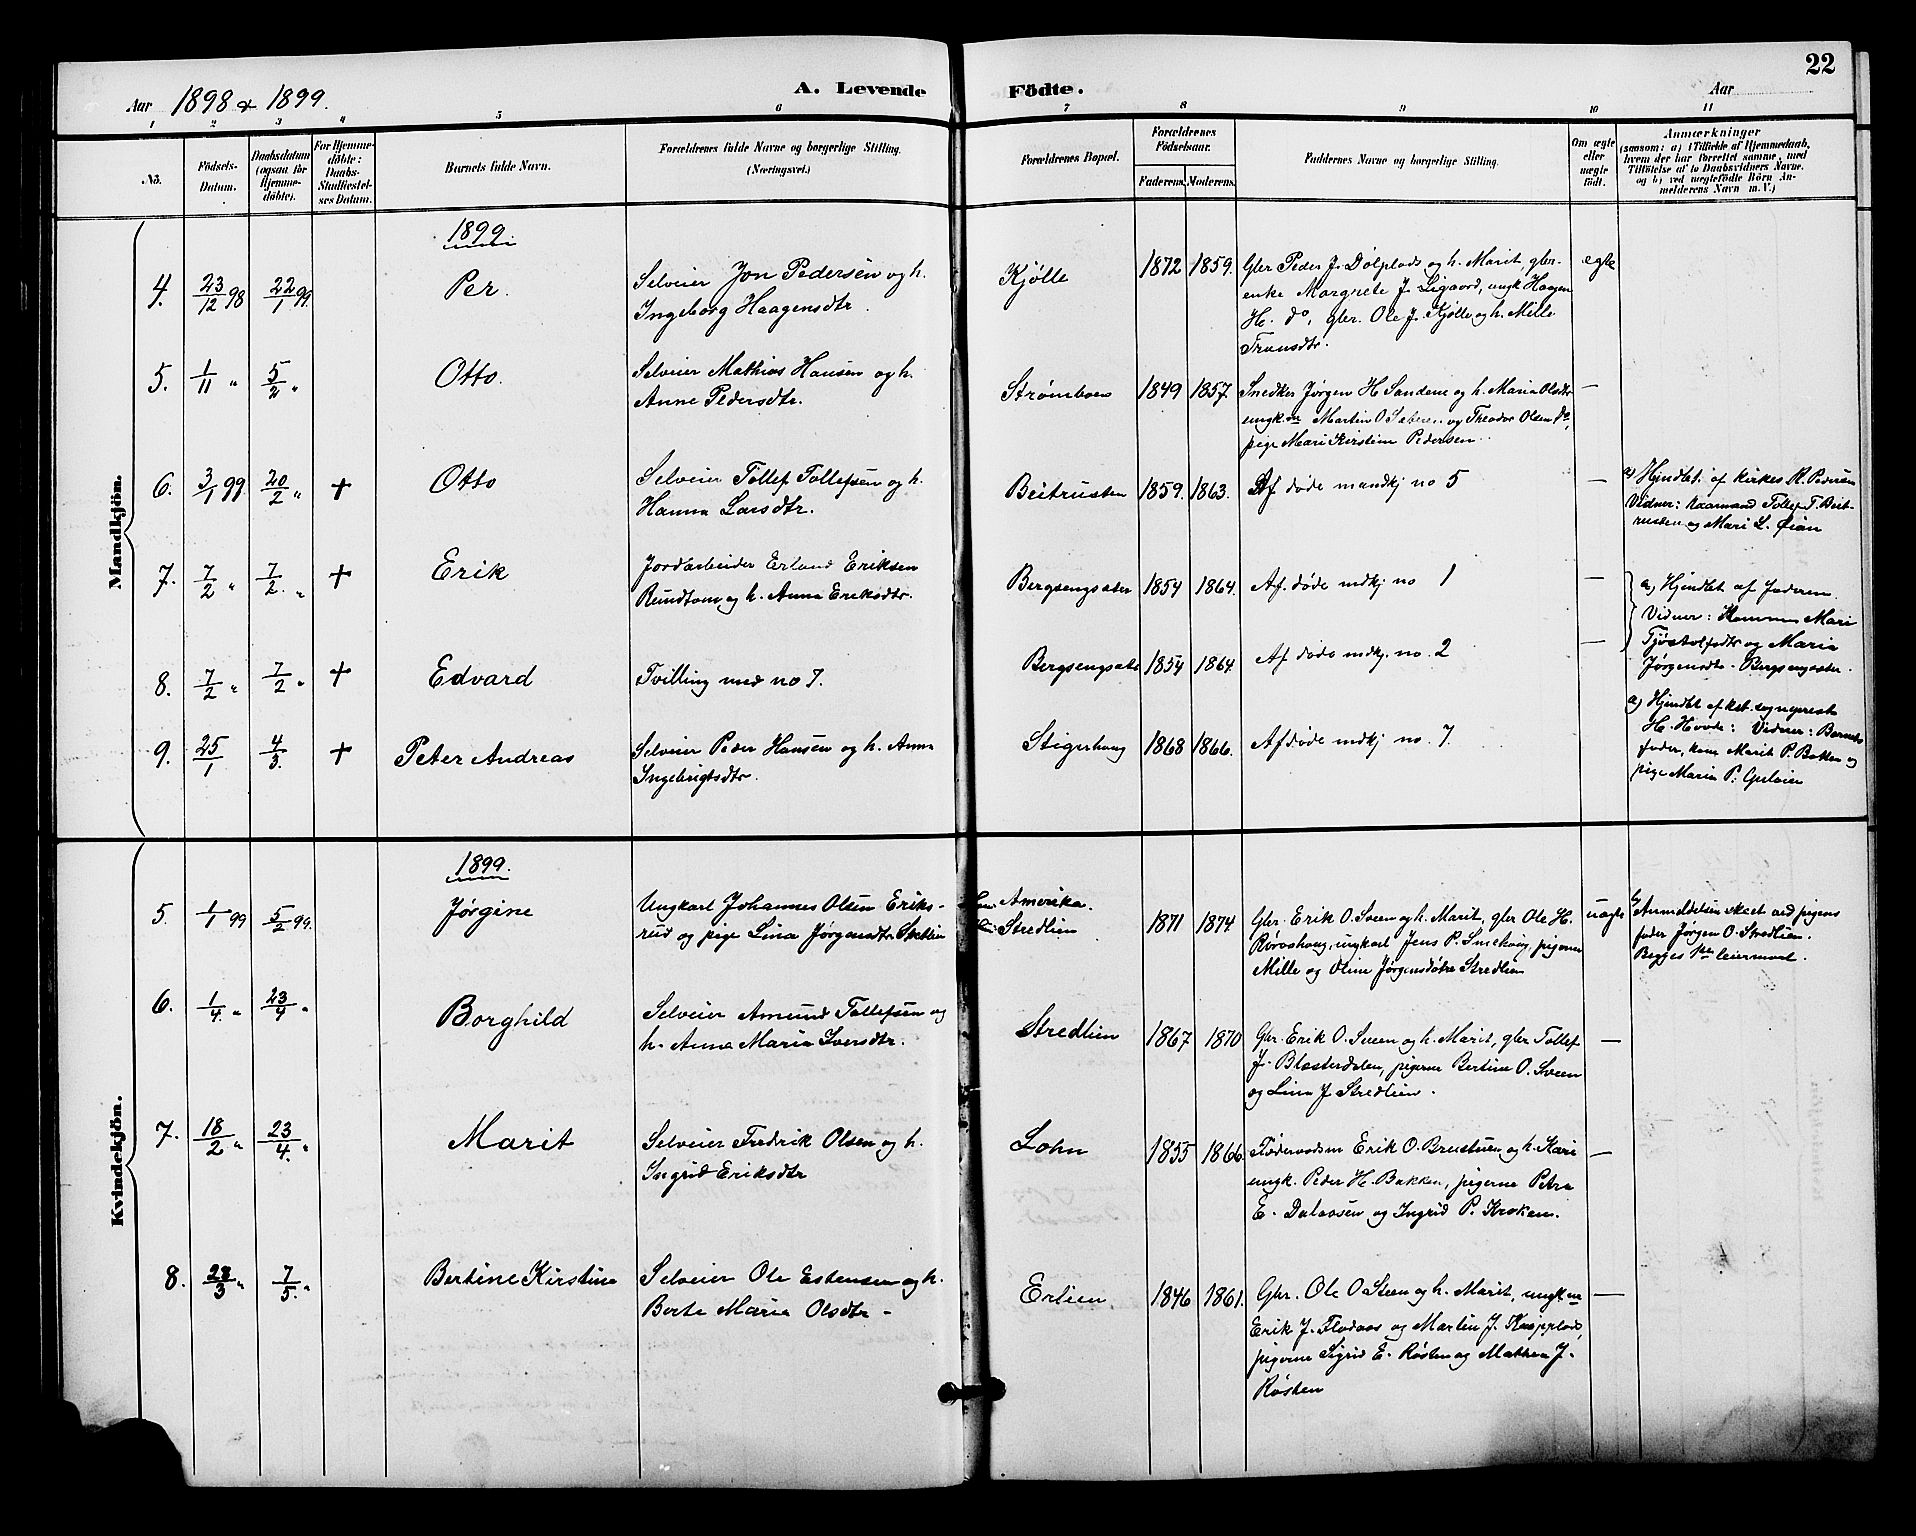 22
Aar 1898 & 1899.
A. Levende Födte.
Aar
1 2 3 4 5 6 7 8 9 10 11
No.
Födsels-
Datum.
Daabsdatum
(ogsaa for
Hjemme-
döbte).
For Hjemme-
döbte:
Daabs-
Stadfæstel-
ses Datum.
Barnets fulde Navn.
Forældrenes fulde Navne og borgerlige Stilling.
(Næringsvei.)
Forældrenes Bopæl.
Forældrenes
Födselsaar.
Faderens. Moderens.
Faddernes Navne og borgerlige Stilling.
Om ægte
eller
uægte
födt.
Anmærkninger
(saasom: a) i Tilfælde af Hjemmedaab,
hvem der har forrettet samme, med
Tilföielse af to Daabsvidners Navne.
og b) ved uægtefödte Börn An-
melderens Navn m. V.)
Mandkjön.
1899.
4. 23/12 98 22/1 99 Per.
Selveier Jon Pedersen og h.
Ingeborg Haagensdtr.
Kjølle 1872 1859.
Gbr Peder J. Dølplads og h. Marit, gbr-
enke Margrete J. Ligaard, ungk Haagen
H. do, gbr. Ole J. Kjølle og h. Mille
Transdtr.
egte
5. 1/11 " 5/2 " Otto.
Selveier Mathias Hansen og h.
Anne Pedersdtr.
Strømboen 1849 1857.
Snedker Jørgen H Sandene og h. Maria Olsdtr
ungk.m Martin O. Sæteren og Theodor Olsen do,
pige Mari Kirstine Pedersen.
—
6. 3/1 99 20/2 " + Otto
Selveier Tollef Tollefsen og h.
Hanna Larsdtr.
Beitrusten 1859. 1863. Af døde mandkj no 5 —
a) Hjmdbt. af kirkes. R. Pedersen
Vidner: Kaarmand Tollef T. Beit-
rusten og Mari L. Øian
7. 7/2 " 7/2. " + Erik
Jordarbeider Erland Eriksen
Rundtom og h. Anna Eriksdtr.
Bergsengsæter 1854 1864. Af. døde mdkj no 1 —
a) Hjmdbt af faderen.
Vidner: Konerne Mari
Tjøstolfsdtr og Maria
Jørgensdtr - Bergsengsæter.
8. 7/2 " 7/2 " + Edvard
Tvilling med no 7.
Bergsengsæter 1854 1864 Af døde mdkj. no. 2 —
9. 25/1 4/3. + Peter Andreas
Selveier Peder Hansen og h. Anne
Ingebrigtsdtr.
Stigerhaug 1868 1866. Af døde mdkj no. 7.
a) Hjmdbt af kst. sognepræst
H. Hovde: Vidner: Barnets
fader, kone Marit P. Bakken og
pige Maria P.
Kvindekjön.
1899.
5. 1/1 99 5/2 99. Jørgine
Ungkarl Johannes Olsen Eriks-
rud og pige Lina Jørgensdtr Stredlien
Amerika.
Stredlien
1871 1874.
Gbr. Erik O. Sveen og h. Marit, gbr Ole H.
Røroshaug, ungkarl Jens P. Snehaug, pigerne
Mille og Oline Jørgensdøtre Stredlien
uægte
b) Anmeldelsen skeet ved pigens
fader Jørgen O. Stredlien.
Begges 1ste leiermaal.
6. 1/4. " 23/4 " Borghild
Selveier Amund Tollefsen og
h. Anne Maria Iversdtr.
Stredlien 1867 1870
Gbr. Erik O. Sveen og h. Marit, gbr Tollef
J. Blæsterdalen, pigerne Bertine O. Sveen
og Lina J Stredlien.
—
7. 18/2 " 23/4. " Marit
Selveier Fredrik Olsen og h.
Ingrid Eriksdtr
Lohn 1855 1866.
Føderaadsm Erik O. Brustuen og h. Kari
ungk. Peder H. Bakken, pigerne Petra
E. Dalaasen og Ingrid P. Kroken.
—
8. 28/3 " 7/5. " Bertine Kirstine
Selveier Ole Estensen og h.
Berte Maria Olsdtr -
Erlien 1846 1861.
Gbr. Ole O Steen og h. Marit, ungk m
Erik J. Flodaas og Martin J. Knipplads,
pigerne Sigrid E. Røsten og Mathea J.
Røsten
—